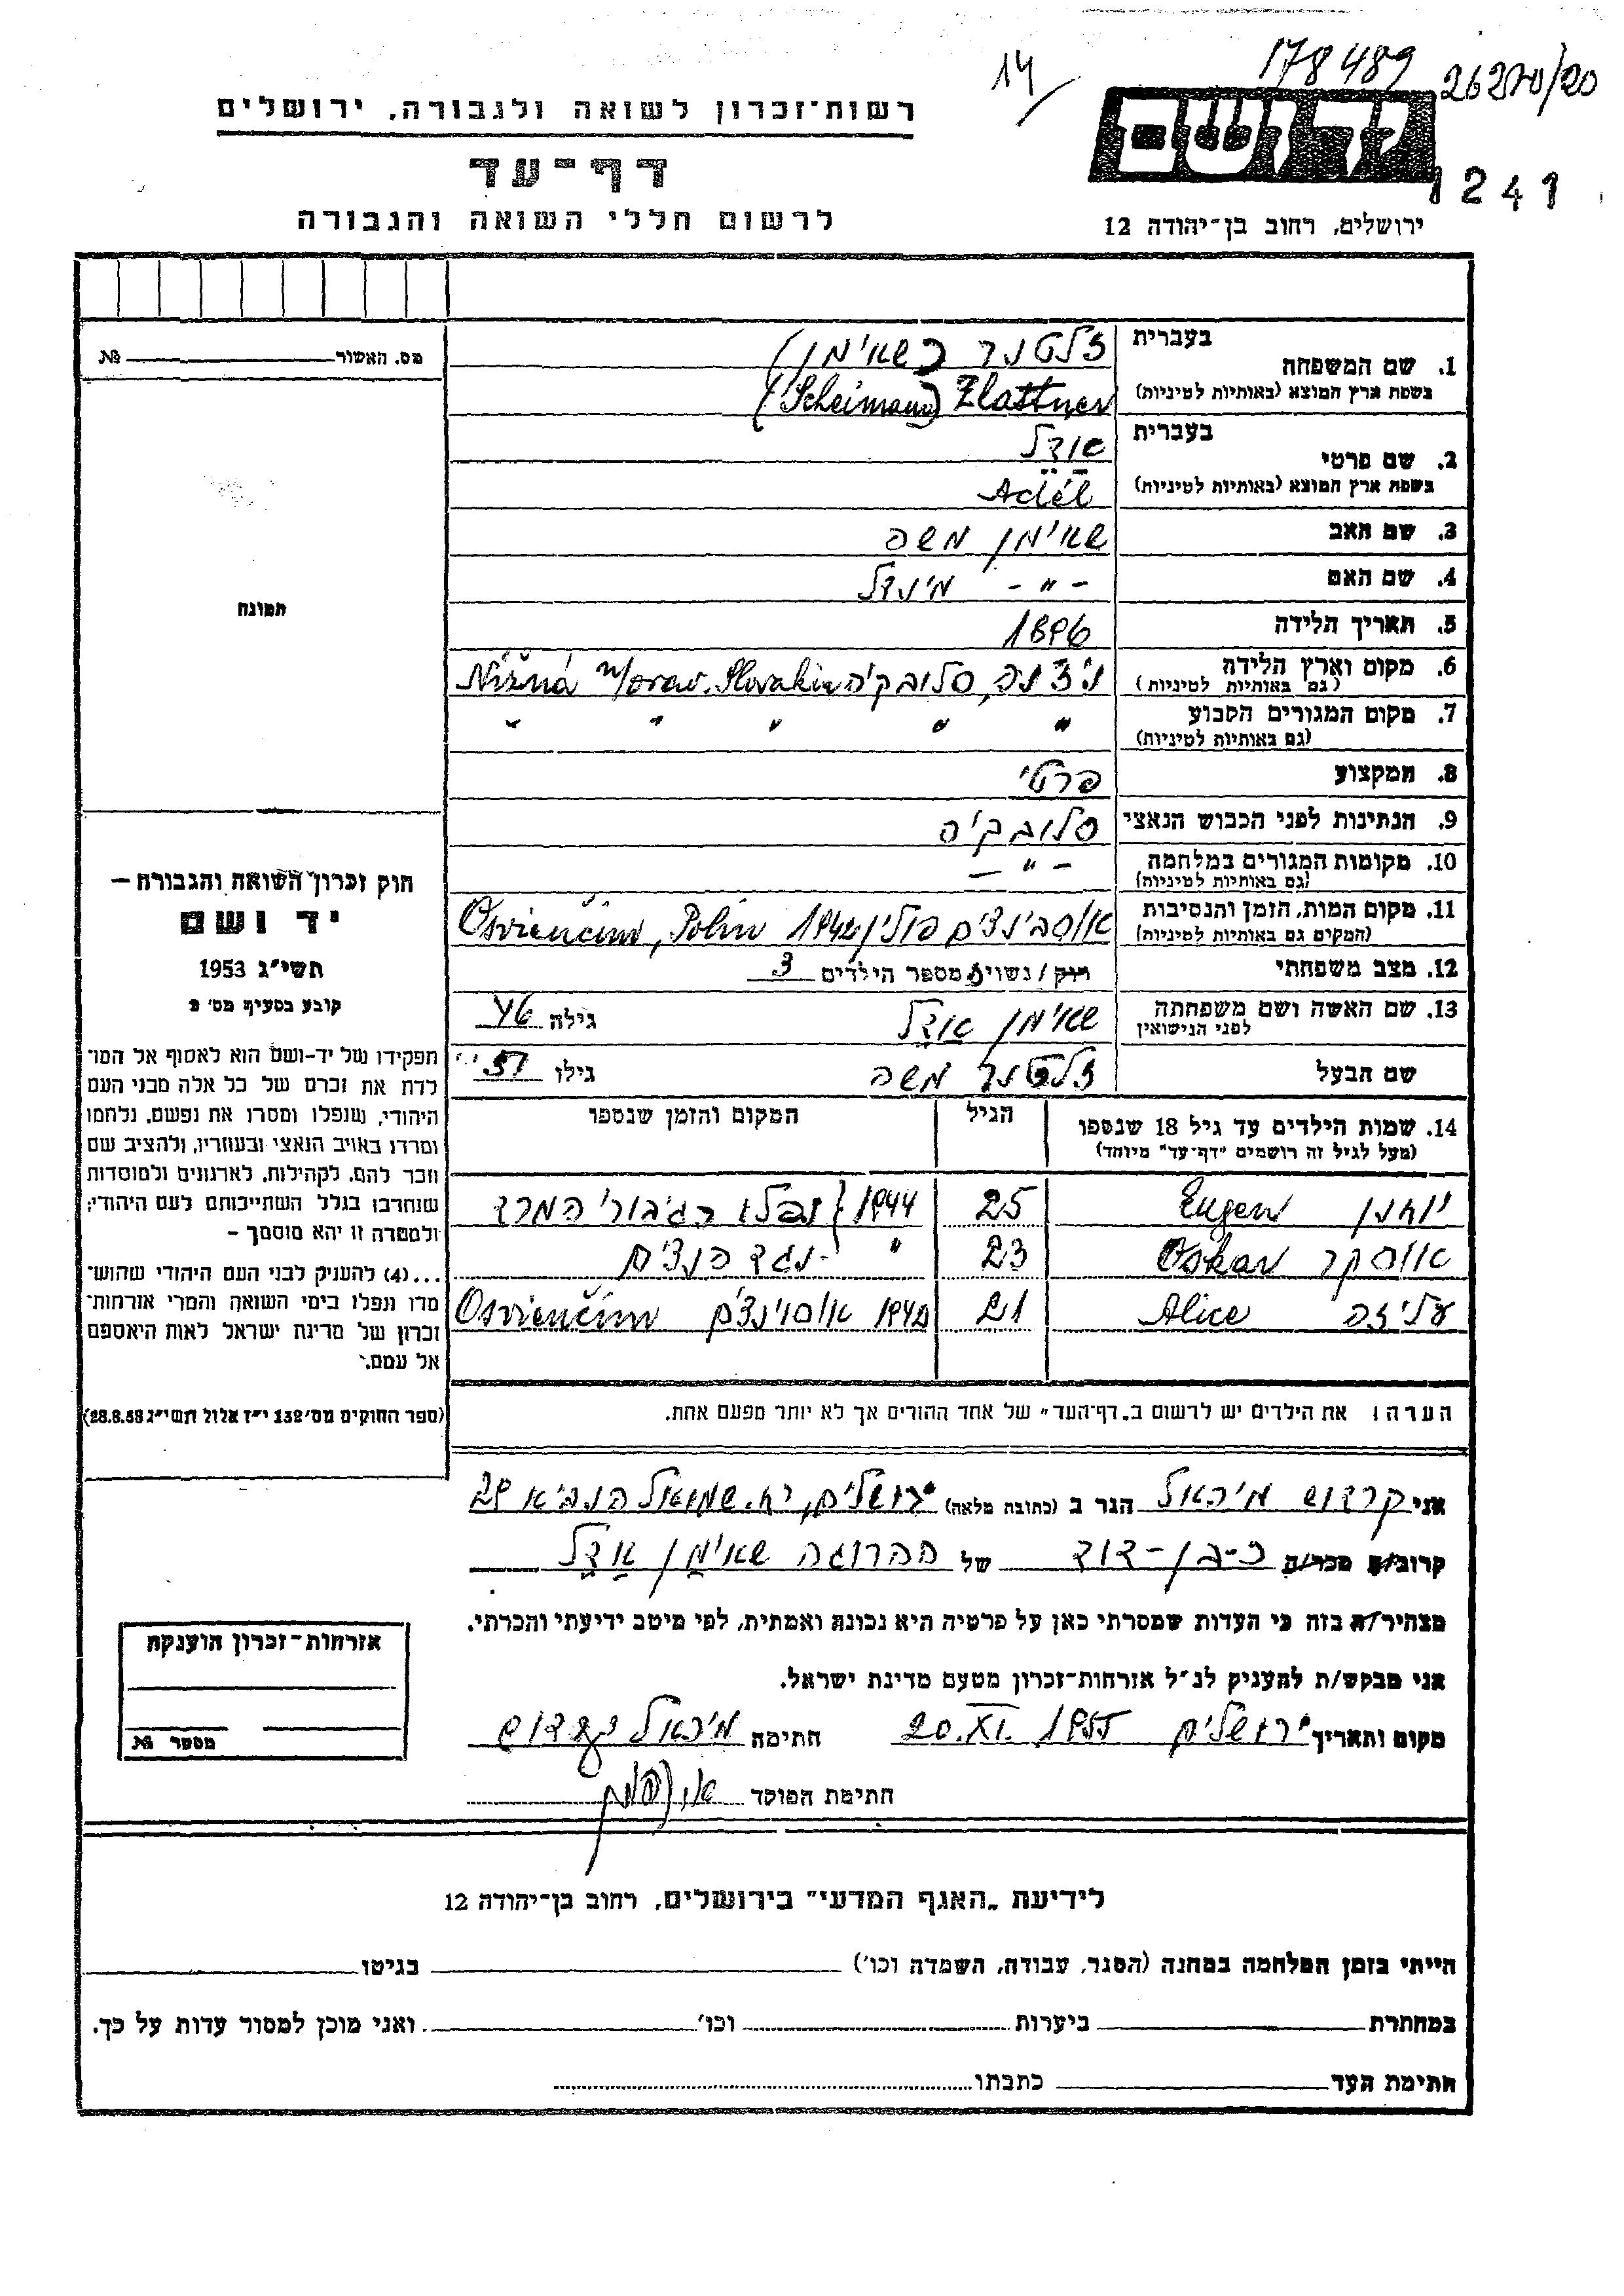 14/
178489
26270/20
רשות־זכרון לשואה ולגבורה, ירושלים
ידושם
דף־עד
1241
לרשום חללי השואה והגבורה
ירושלים, רחוב בן־יהודה 12
מס. האשור № 
תמונה
חוק זכרון השואה והגבורה —
יד ושם
תשי״ג 1953
קובע בסעיף מס׳ 2
תפקידו של יד-ושם הוא לאסוף אל המו־
לדת את זכרם של כל אלה מבני העם
היהודי, שנפלו ומסרו את נפשם, נלחמו
ומרדו באויב הנאצי ובעוזריו, ולהציב שם
וזכר להם, לקהילות, לארגונים ולמוסדות
שנחרבו בגלל השתייכותם לעם היהודי;
ולמטרה זו יהא מוסמך –
...(4) להעניק לבני העם היהודי שהוש־
מדו ונפלו בימי השואה והמרי אזרחות־
זכרון של מדינת ישראל לאות היאספם
אל עמם.
(ספר החוקים מס׳ 132 י״ז אלול תשי״ג 28.8.53)
1. שם המשפחה בעברית זלטנר (שאימן)
בשפת ארץ המוצא (באותיות לטיניות) Zlattner (Scheimann)
2. שם פרטי בעברית אודל
בשפת ארץ המוצא (באותיות לטיניות) Adél
3. שם האב שאימן משה
4. שם האם -״- מינדל
5. תאריך הלידה 1896
6. מקום וארץ הלידה (גם באותיות לטיניות) ניז׳נה, סלובקיה Nižná n/orav. Slovakia
7. מקום המגורים הקבוע (גם באותיות לטיניות) ״ ״ ״ ״ ״
8. המקצוע פרטי
9. הנתינות לפני הכבוש הנאצי סלובקיה
10. מקומות המגורים במלחמה (גם באותיות לטיניות) -״-
11. מקום המות, הזמן והנסיבות (המקום גם באותיות לטיניות) אוסבינצים פולין 1942 Osvienčim, Polin
12. מצב משפחתי רווק / נשוי/ה מספר הילדים 3
13. שם האשה ושם משפחתה לפני הנישואין שאימן אדל גילה 46
שם הבעל זלטנר משה גילו 51
14. שמות הילדים עד גיל 18 שנספו הגיל המקום והזמן שנספו
(מעל לגיל זה רושמים ״דף־עד״ מיוחד)
יוחנן Eugen 25 1944 נפלו כגיבורי המרד
אוסקר Oskar 23 ״ נגד הנצים
עליזה Alice 21 1942 אוסוינצים Osvienčim
הערה: את הילדים יש לרשום ב„דף־העד״ של אחד ההורים אך לא יותר מפעם אחת.
אני קרדוש מיכאל הגר ב (כתובת מלאה) ירושלים, רח. שמואל הנביא 29
קרוב/ה מכר/ה כ-בן-דוד של ההרוגה שאימן אדל
מצהיר/ה בזה כי העדות שמסרתי כאן על פרטיה היא נכונה ואמתית, לפי מיטב ידיעתי והכרתי.
אני מבקש/ת להעניק לנ״ל אזרחות־זכרון מטעם מדינת ישראל.
מקום ותאריך ירושלים 20.XI.1955 חתימה מיכאל קרדוש
חתימת הפוקד
אזרחות־זכרון הוענקה
מספר №
לידיעת „האגף המדעי״ בירושלים, רחוב בן־יהודה 12
הייתי בזמן המלחמה במחנה (הסגר, עבודה, השמדה וכו׳) בגיטו
במחתרת ביערות וכו׳ ואני מוכן למסור עדות על כך.
חתימת העד כתבתו